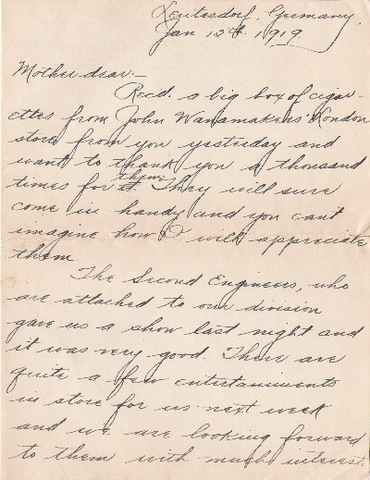 Leutesdorf, Germany,
Jan 12th. 1919.
Mother dear:-
Recd. a big box of cigar-
ettes from John Wanamakers' London
store from you yesterday and
want to thank you a thousand
times for it. them. They will sure
come in handy and you can't
imagine how I will appreciate
them
The Second Engineers, who
are attached to our division
gave us a show last night and
it was very good. There are
quite a few entertainments
in store for us next week
and we are looking forward
to them with much interest.